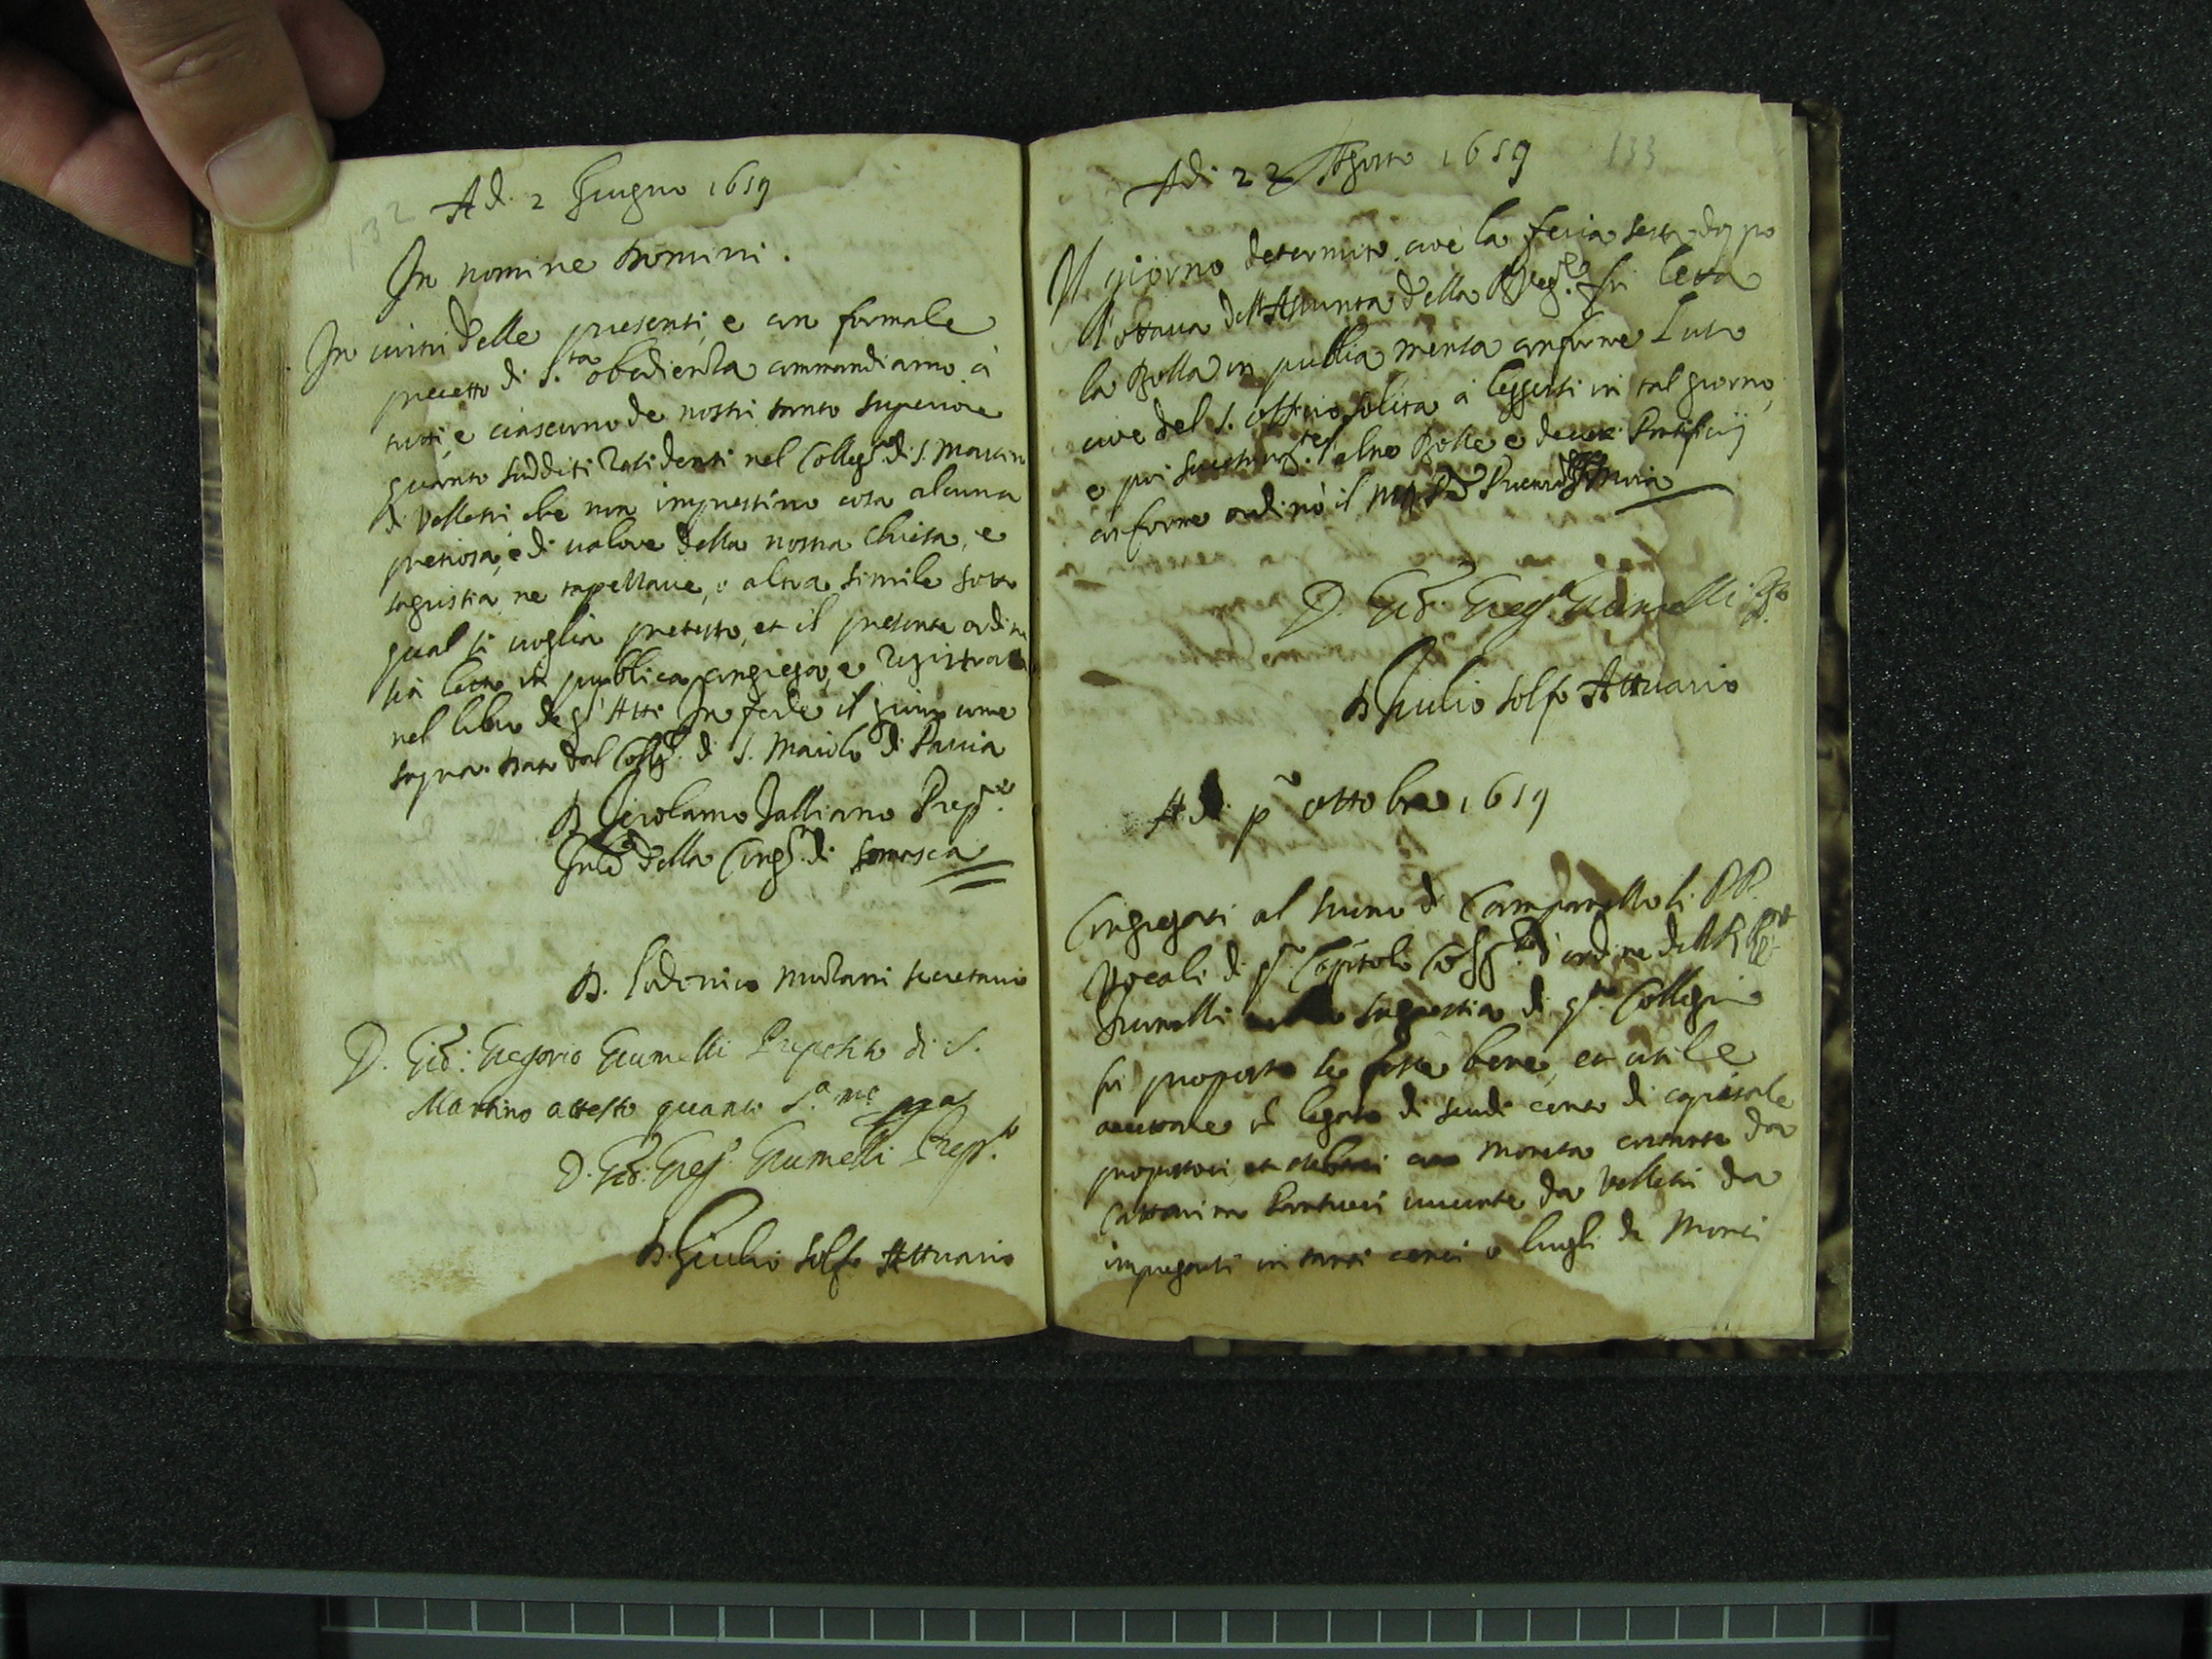 132
A dì 2 Giugno 1659
In nomine Domini.
In virtù delle presenti, e con formale
precetto di S.ta obedienza commandiamo à
tutti, e ciascuno de nostri tanto superiore
quanto sudditi residenti nel Colleg.º di S. Martino
di Velletri che non imprestino cosa alcuna
pretiosa, e di valore della nostra Chiesa, e
sagristia, ne tapellarie, o altra simile sotto
qual si voglia pretesto, et il presente ordine
sia letto in publica congrega, e registrato
nel libro degl'Atti In fede il giorno come
sopra. Dato dal Coll.º di S. Maiolo di Pavia
D. Girolamo Prep.to
Gnle della Cong.ne di Somasca
D. Lodovico secretario
D. Gio: Gregorio Grumelli Preposito di S.
Martino attesto quanto S.a
D. Gio: Greg.º Grumelli Prep.to
D. Giulio Solfo Attuario
133
Adì 22 Agosto 1659
Il giorno cioè la feria sesta doppo
l'ottava dell'Assunta della fù letta
la Bolla in publica mensa conforme
cioè del S. Offitio solita à leggersi in tal giorno,
e poi l'altre Bolle, e decreti Pontificij
conforme ordinò il
D. Gio: Greg.º Grumelli
D. Giulio Solfo Attuario
Adì pº ottobre 1659
Congregati al suono di Campanello li PP.
Vocali di Capitolo d'ordine del
Grumelli sagrestia di Collegio
fù proposto se fosse bene, et utile
accettare il legato di scudi cento di capitale
moneta da
Velletri da
in tanti censi o luoghi di Monti